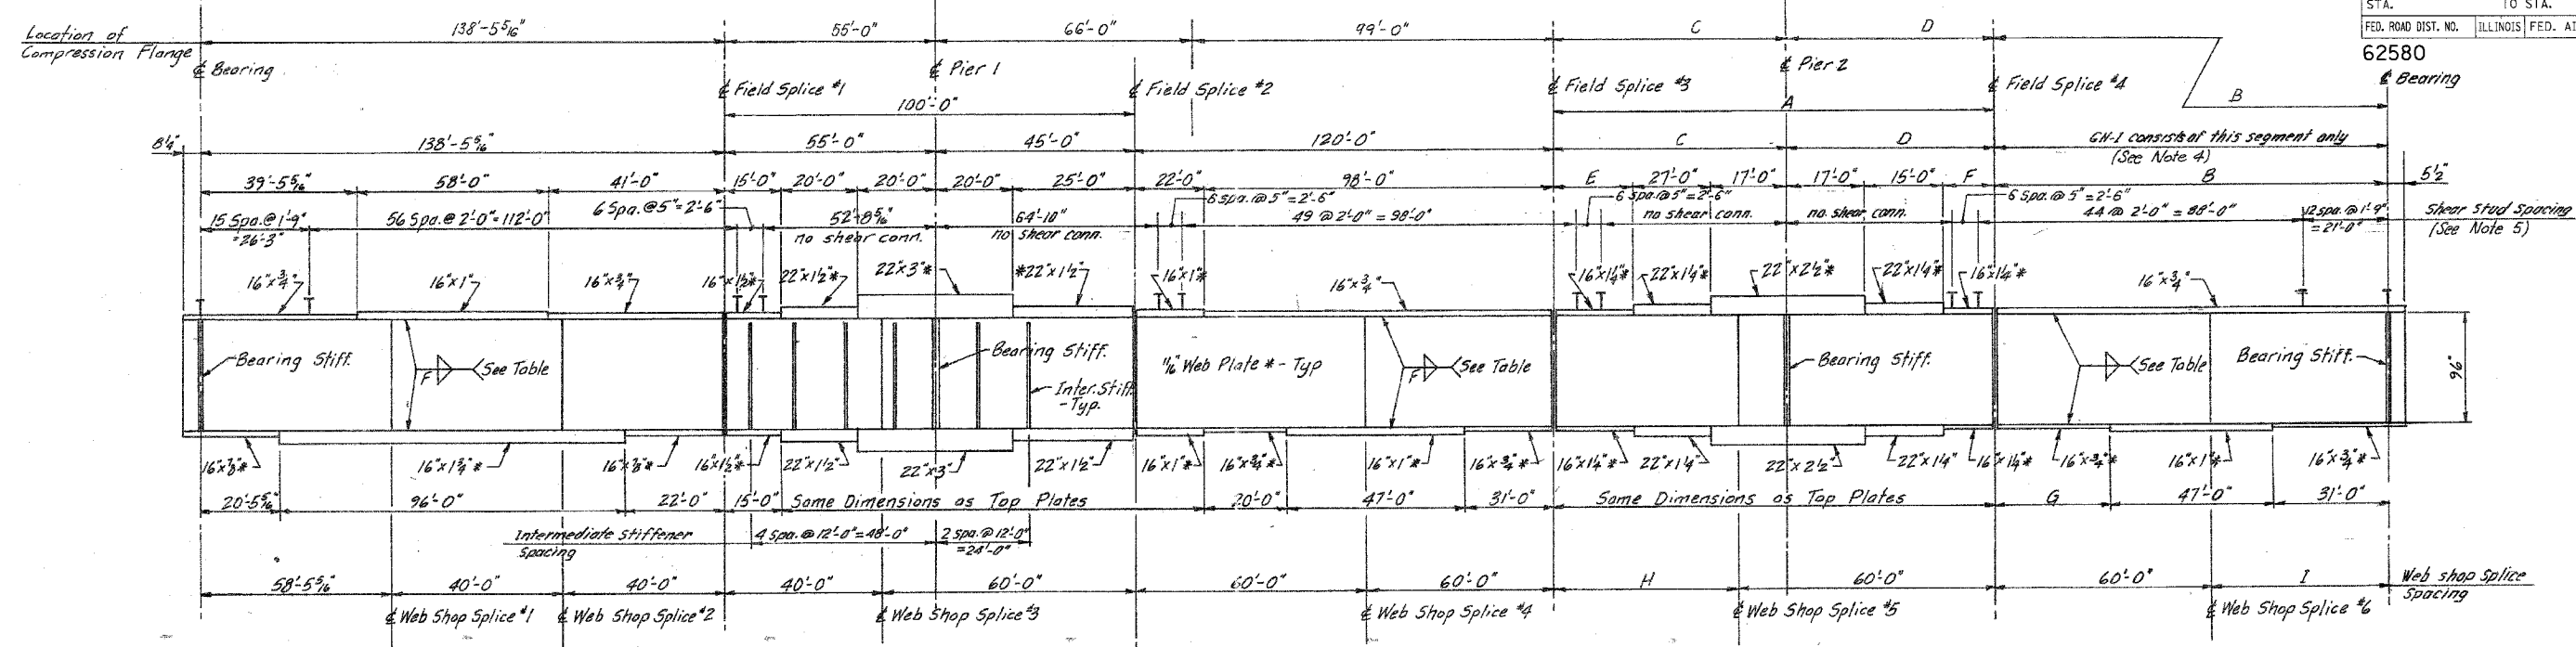 STA. TO STA.
FED. ROAD DIST. NO. ILLINOIS FED. AI
62580
Location of
Compression Flange
138'-5 5/16" 55'-0" 66'-0" 99'-0" C D
℄ Bearing ℄ Pier 1 ℄ Pier 2 ℄ Bearing
℄ Field Splice #1 ℄ Field Splice #2 ℄ Field Splice #3 ℄ Field Splice #4
100'-0" A B
8 1/4" 138'-5 5/16" 55'-0" 45'-0" 120'-0" C D GN-1 consists of this segment only
(See Note 4)
39'-5 5/16" 58'-0" 41'-0" 15'-0" 20'-0" 20'-0" 20'-0" 25'-0" 22'-0" 98'-0" E 27'-0" 17'-0" 17'-0" 15'-0" F B 5 1/2"
6 Spa. @ 5" = 2'-6" 6 spa. @ 5" = 2'-6" 6 spa. @ 5" = 2'-6" 6 spa. @ 5" = 2'-6"
15 Spa @ 1'-9" 56 Spa. @ 2'-0" = 112'-0" 52'-8 5/16" 64'-10" 49 @ 2'-0" = 98'-0" no shear conn. no shear conn. 44 @ 2'-0" = 88'-0" 12 spa. @ 1'-9" Shear Stud Spacing
= 26'-3" no shear conn. no shear conn. = 21'-0" (See Note 5)
16"x3/4" 16"x1" 16"x3/4"* 16"x1 1/2"* 22"x1 1/2"* 22"x3"* *22"x1 1/2" 16"x1"* 16"x3/4" 16"x1 1/4"* 22"x1 1/4"* 22"x2 1/2"* 22"x1 1/4"* 16"x1 1/4"* 16"x3/4"
Bearing Stiff. F See Table Bearing Stiff. 11/16" Web Plate * - Typ F See Table Bearing Stiff. See Table Bearing Stiff. 96"
Inter. Stiff.
-Typ.
16"x7/8"* 16"x1 3/4"* 16"x7/8"* 16"x1 1/2"* 22"x1 1/2" 22"x3" 22"x1 1/2" 16"x1"* 16"x3/4"* 16"x1"* 16"x3/4"* 16"x1 1/4"* 22"x1 1/4" 22"x2 1/2" 22"x1 1/4" 16"x1 1/4"* 16"x3/4"* 16"x1"* 16"x3/4"*
20'-5 5/16" 96'-0" 22'-0" 15'-0" Same Dimensions as Top Plates 20'-0" 47'-0" 31'-0" Same Dimensions as Top Plates G 47'-0" 31'-0"
Intermediate Stiffener 4 spa. @ 12'-0" = 48'-0" 2 spa. @ 12'-0"
Spacing = 24'-0"
58'-5 5/16" 40'-0" 40'-0" 40'-0" 60'-0" 60'-0" 60'-0" H 60'-0" 60'-0" I Web shop Splice
Spacing
℄ Web Shop Splice #1 ℄ Web Shop Splice #2 ℄ Web Shop Splice #3 ℄ Web Shop Splice #4 ℄ Web Shop Splice #5 ℄ Web Shop Splice #6